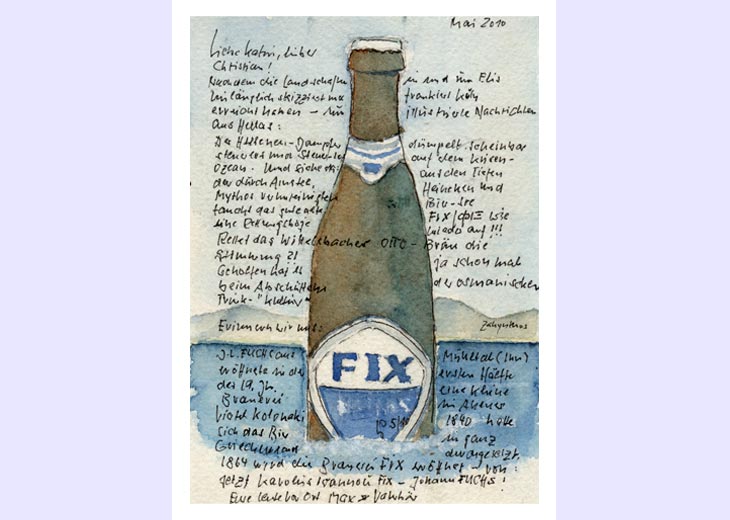 Mai 2010
Liebe Katri, lieber
Christian!
Nachdem die Landschaften in und um Elis
hinlänglich skizziert
erreicht haben – nun illustrierte Nachrichten
aus Hellas:
Der Hellenen-Dampfer dümpelt scheinbar
steuerlos auf dem Krisen-
Ozean. Und siehe da: aus den Tiefen
der durch Amstel, Heineken und
Mythos verunreinigten Bier-See
taucht das gute alte FIX/ΦΙΞ wie
eine Rettungsboje wieder auf!!!
Rettet das Wittelsbacher Otto-Bräu die
Stimmung?!
Geholfen hat es ja schon mal
beim Abschütteln der osmanischen
Trink-"Kultur"
Erinnern wir uns:
Zakynthos
J.C. FUCHS aus
eröffnete in der ersten Hälfte
des 19. Jh. eine kleine
Brauerei in Athen
Viertel Kolonaki 1840 hatte
sich das Bier in ganz
Griechenland durchgesetzt.
1864 wird die Brauerei FIX eröffnet – von:
Jetzt Karolos Ioannou Fix – Johann FUCHS!
FIX
HELLAS